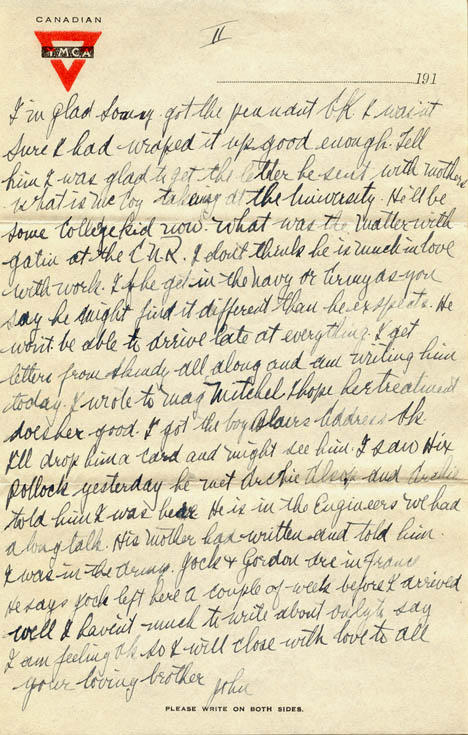 CANADIAN
Y.M.C.A.
II
191
I'm glad Sonny got the pennant OK. I was'nt
sure I had wraped it up good enough. Tell
him I was glad to get the letter he sent with mothers
What is McCoy taking at the University. He'll be
some College kid now. What was the matter with
at the C.N.R. I don't think he is much in love
with work. If he get in the navy or Army as you
say he might find it different than he expects. He
wont be able to arrive late at everything. I get
letters from all along and am writing him
today. I wrote to Mag Mitchel I hope her treatment
does her good. I got the boy Blairs address OK
I'll drop him a card and might see him. I saw Hix
Pollock yesterday he met Archie and Archie
told him I was here. He is in the Engineers we had
a long talk. His mother had written and told him
I was in the army. Jock & Gordon are in France
He says Jock left here a couple of week before I arrived
well I havent much to write about only to say
I am feeling ok so I will close with love to all
your loving brother John
PLEASE WRITE ON BOTH SIDES.